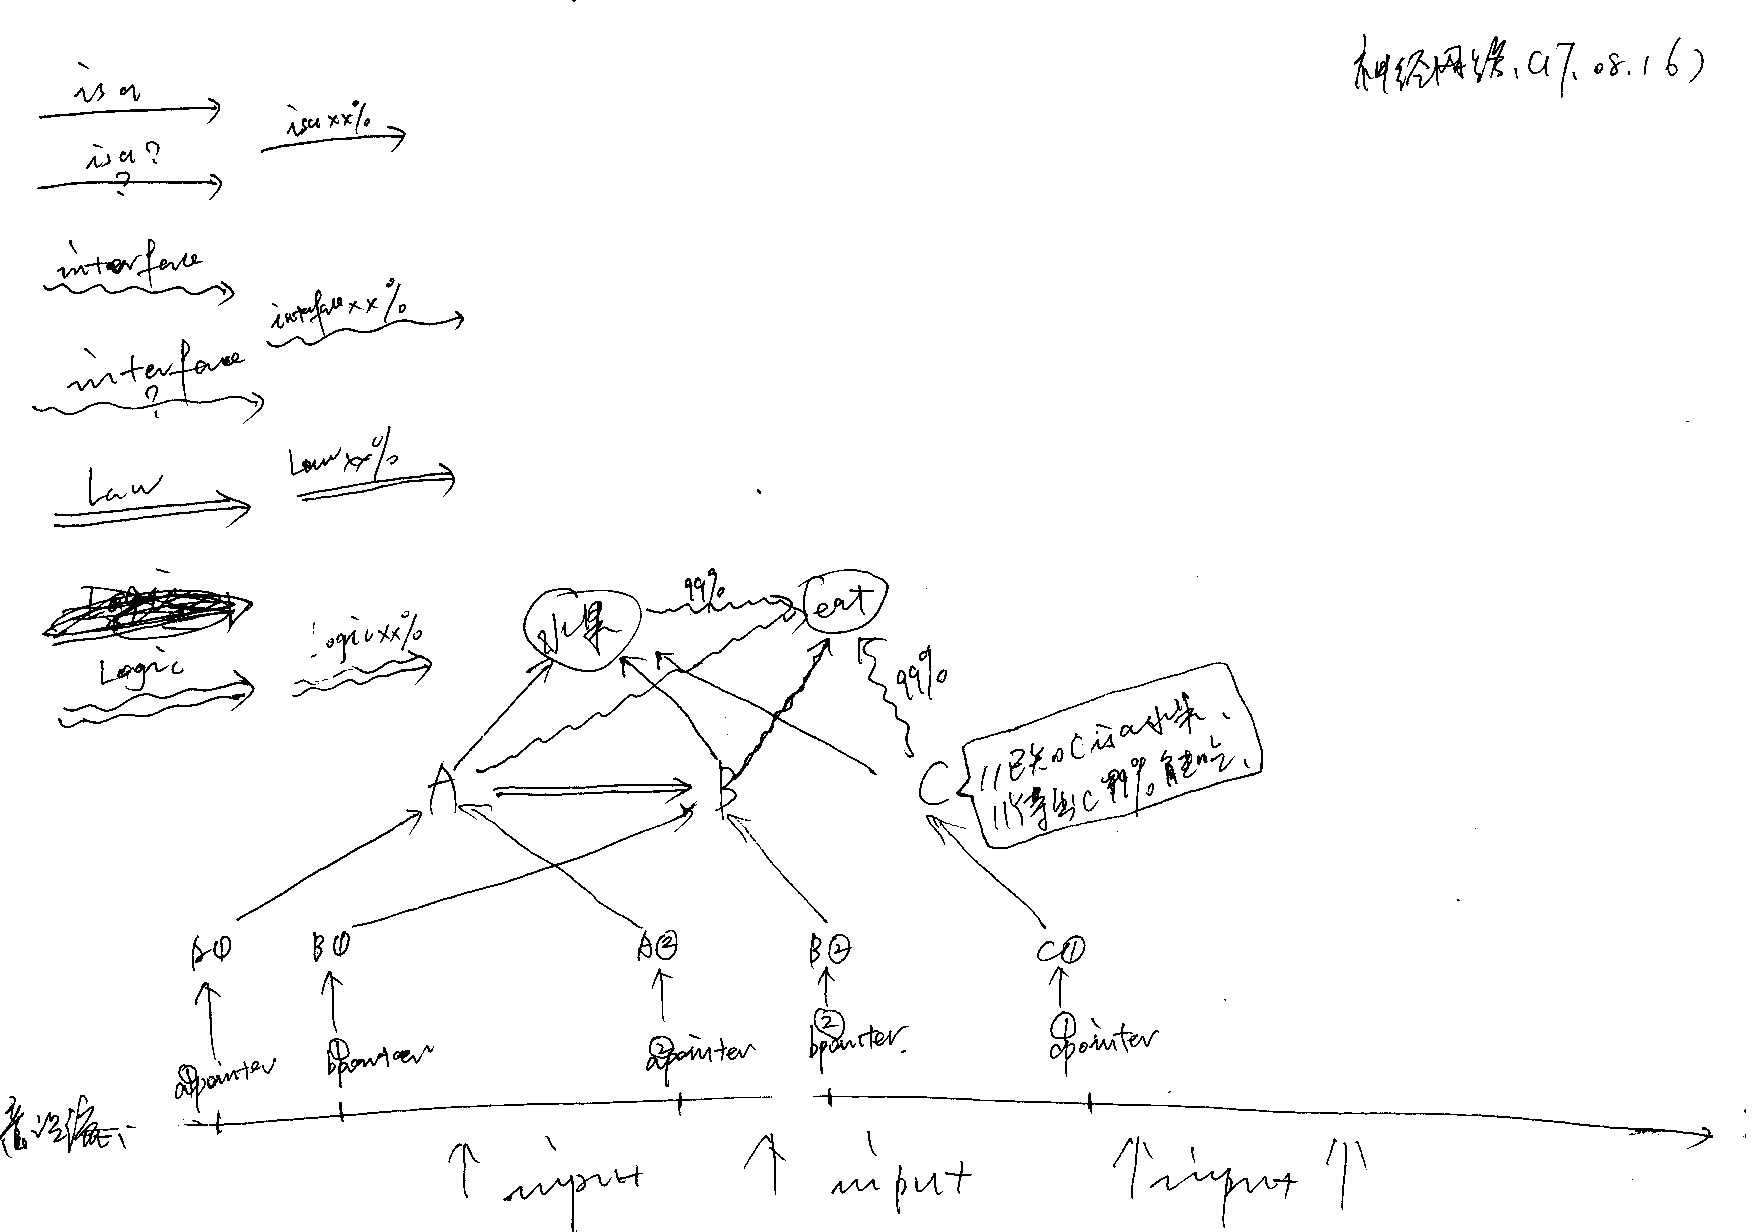 神经网络.(17.08.16)
is a
isa xx%
is a?
?
interface
interface xx%
interface
?
Law
Law xx%
Logic
Logic xx%
水果
99%
eat
99%
A
B
C
//已知C is a 水果、
//得出C 99% 能吃、
A①
B①
A②
B②
C①
a①pointer
b①pointer
a②pointer
b②pointer.
c①pointer
意识流
input
input
input